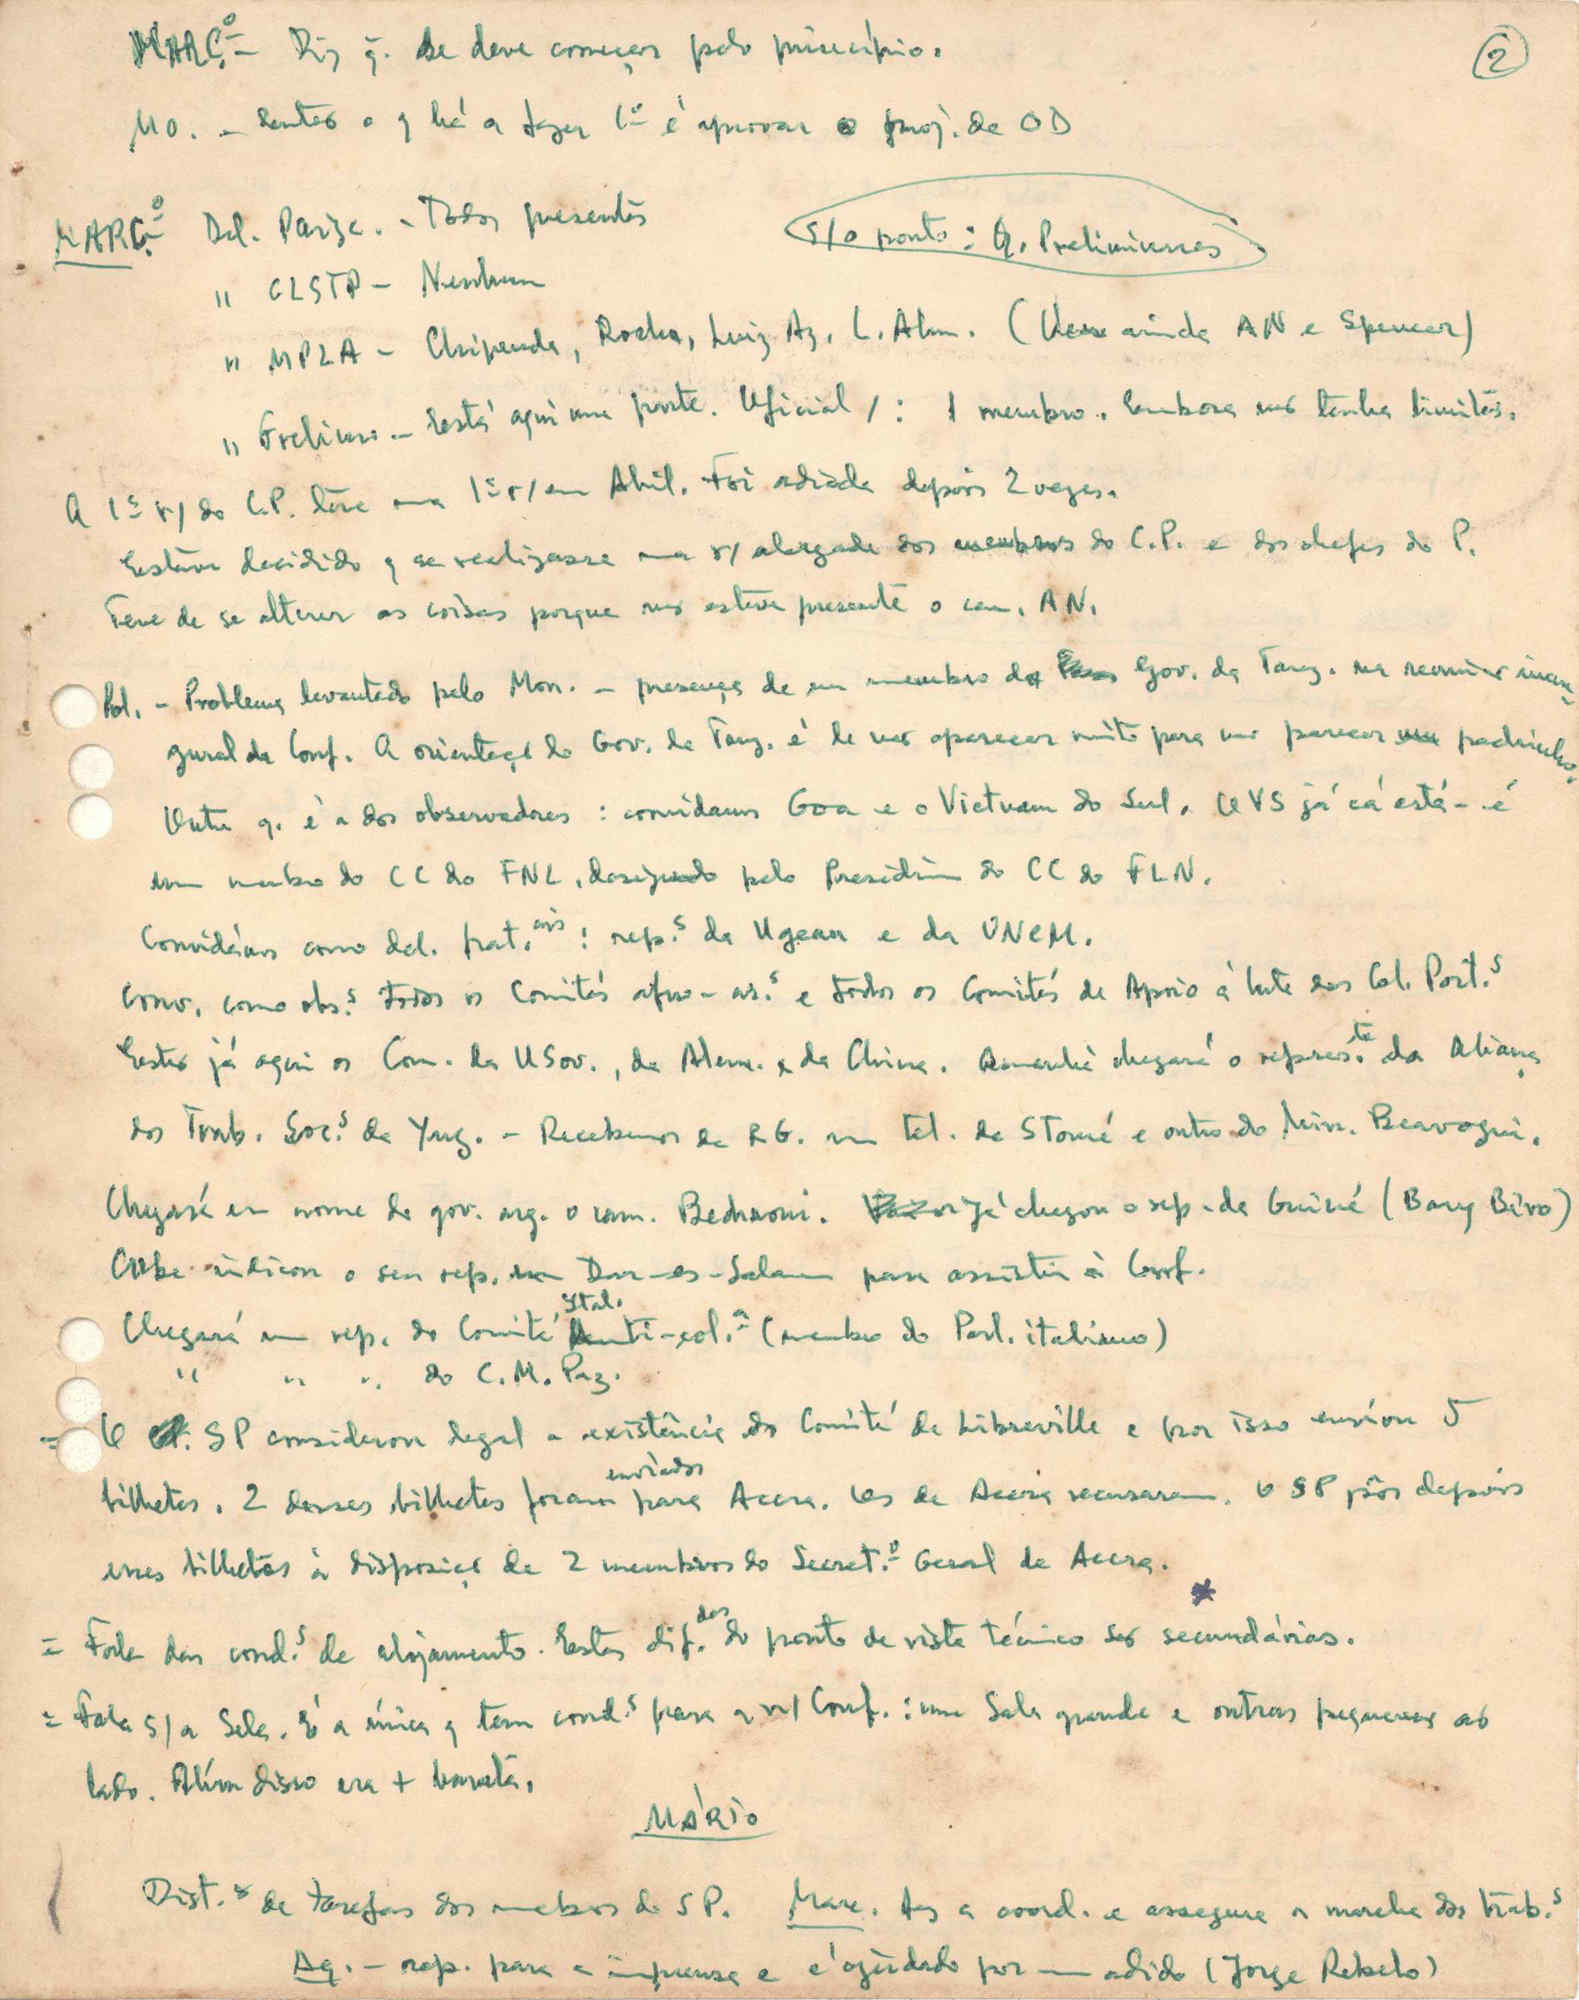 MARC.º – Diz q. se deve começar pelo princípio.
②
Mo. – Sentes o q há a fazer 1º é aprovar o proj. de OD
MARC.º Del. Paigc. – Todos presentes
s/o ponto: Q. Preliminares
" CLSTP – Nenhum
" MPLA – Chipenda, Rocha, Luiz Az., L. Alm. (Vem ainda AN e Spencer)
" Frelimo – Está aqui uma parte. Oficial/: 1 membro. Embora não tenha limites.
A 1ª r/ do C.P. teve uma 1ª r/ em Abril. Foi adiada depois 2 vezes.
Estava decidido q se realizasse uma r/ alargada dos membros do C.P. e dos chefes do P.
Teve de se alterar as coisas porque não esteve presente o cam. AN.
Pol. – Problema levantado pelo Mon. – presença de um membro do Gov. da Tanz. na reunião inau-
gural da Conf. A orientaç do Gov. da Tanz. é de não aparecer muito para não parecer padrinho.
Outra q. é a dos observadores: convidamos Goa e o Vietnam do Sul. O VS já cá está – é
um membro do CC do FNL, designado pelo Presidium do CC do FLN.
Convidámos como del. frat.ais: rep.s da Ugean e da UNEM.
Conv. como obs.s todos os Comités afro-as.s e todos os Comités de Apoio à luta das Col. Port.s
Estão já aqui os Com. da USov., da Alem. e da China. Amanhã chegará o repres.te da Aliança
dos Trab. Soc.s da Yug. – Recebemos da RG. um tel. de STomé e outro do Min. Beavogui.
Chegará em nome do gov. arg. o cam. Bedraoui. já chegou o rep. da Guiné (Bary Bivo)
Cuba indicou o seu rep. em Dar-es-Salam para assistir à Conf.
Chegará um rep. do Comité Ital. Anti-col.ª (membro do Parl. italiano)
" " " do C.M. Paz.
= O SP considerou legal a existência do Comité de Libreville e por isso enviou 5
bilhetes. 2 desses bilhetes foram enviados para Accra. Os de Accra recusaram. O SP pôs depois
esses bilhetes à disposiç de 2 membros do Secret.º Geral de Accra.
= Fala das cond.s de alojamento. Estas dif.des do ponto de vista técnico são secundárias. *
= Fala s/ a Sala. É a única q tem cond.s para a n/ Conf.: uma Sala grande e outras pequenas ao
lado. Além disso era + barata.
MÁRIO
Dist.º de tarefas dos membros do SP. Marc. faz a coord. e assegura a marcha dos trab.s
Aq. – rep. para a imprensa e é ajudado por um adido (Jorge Rebelo)